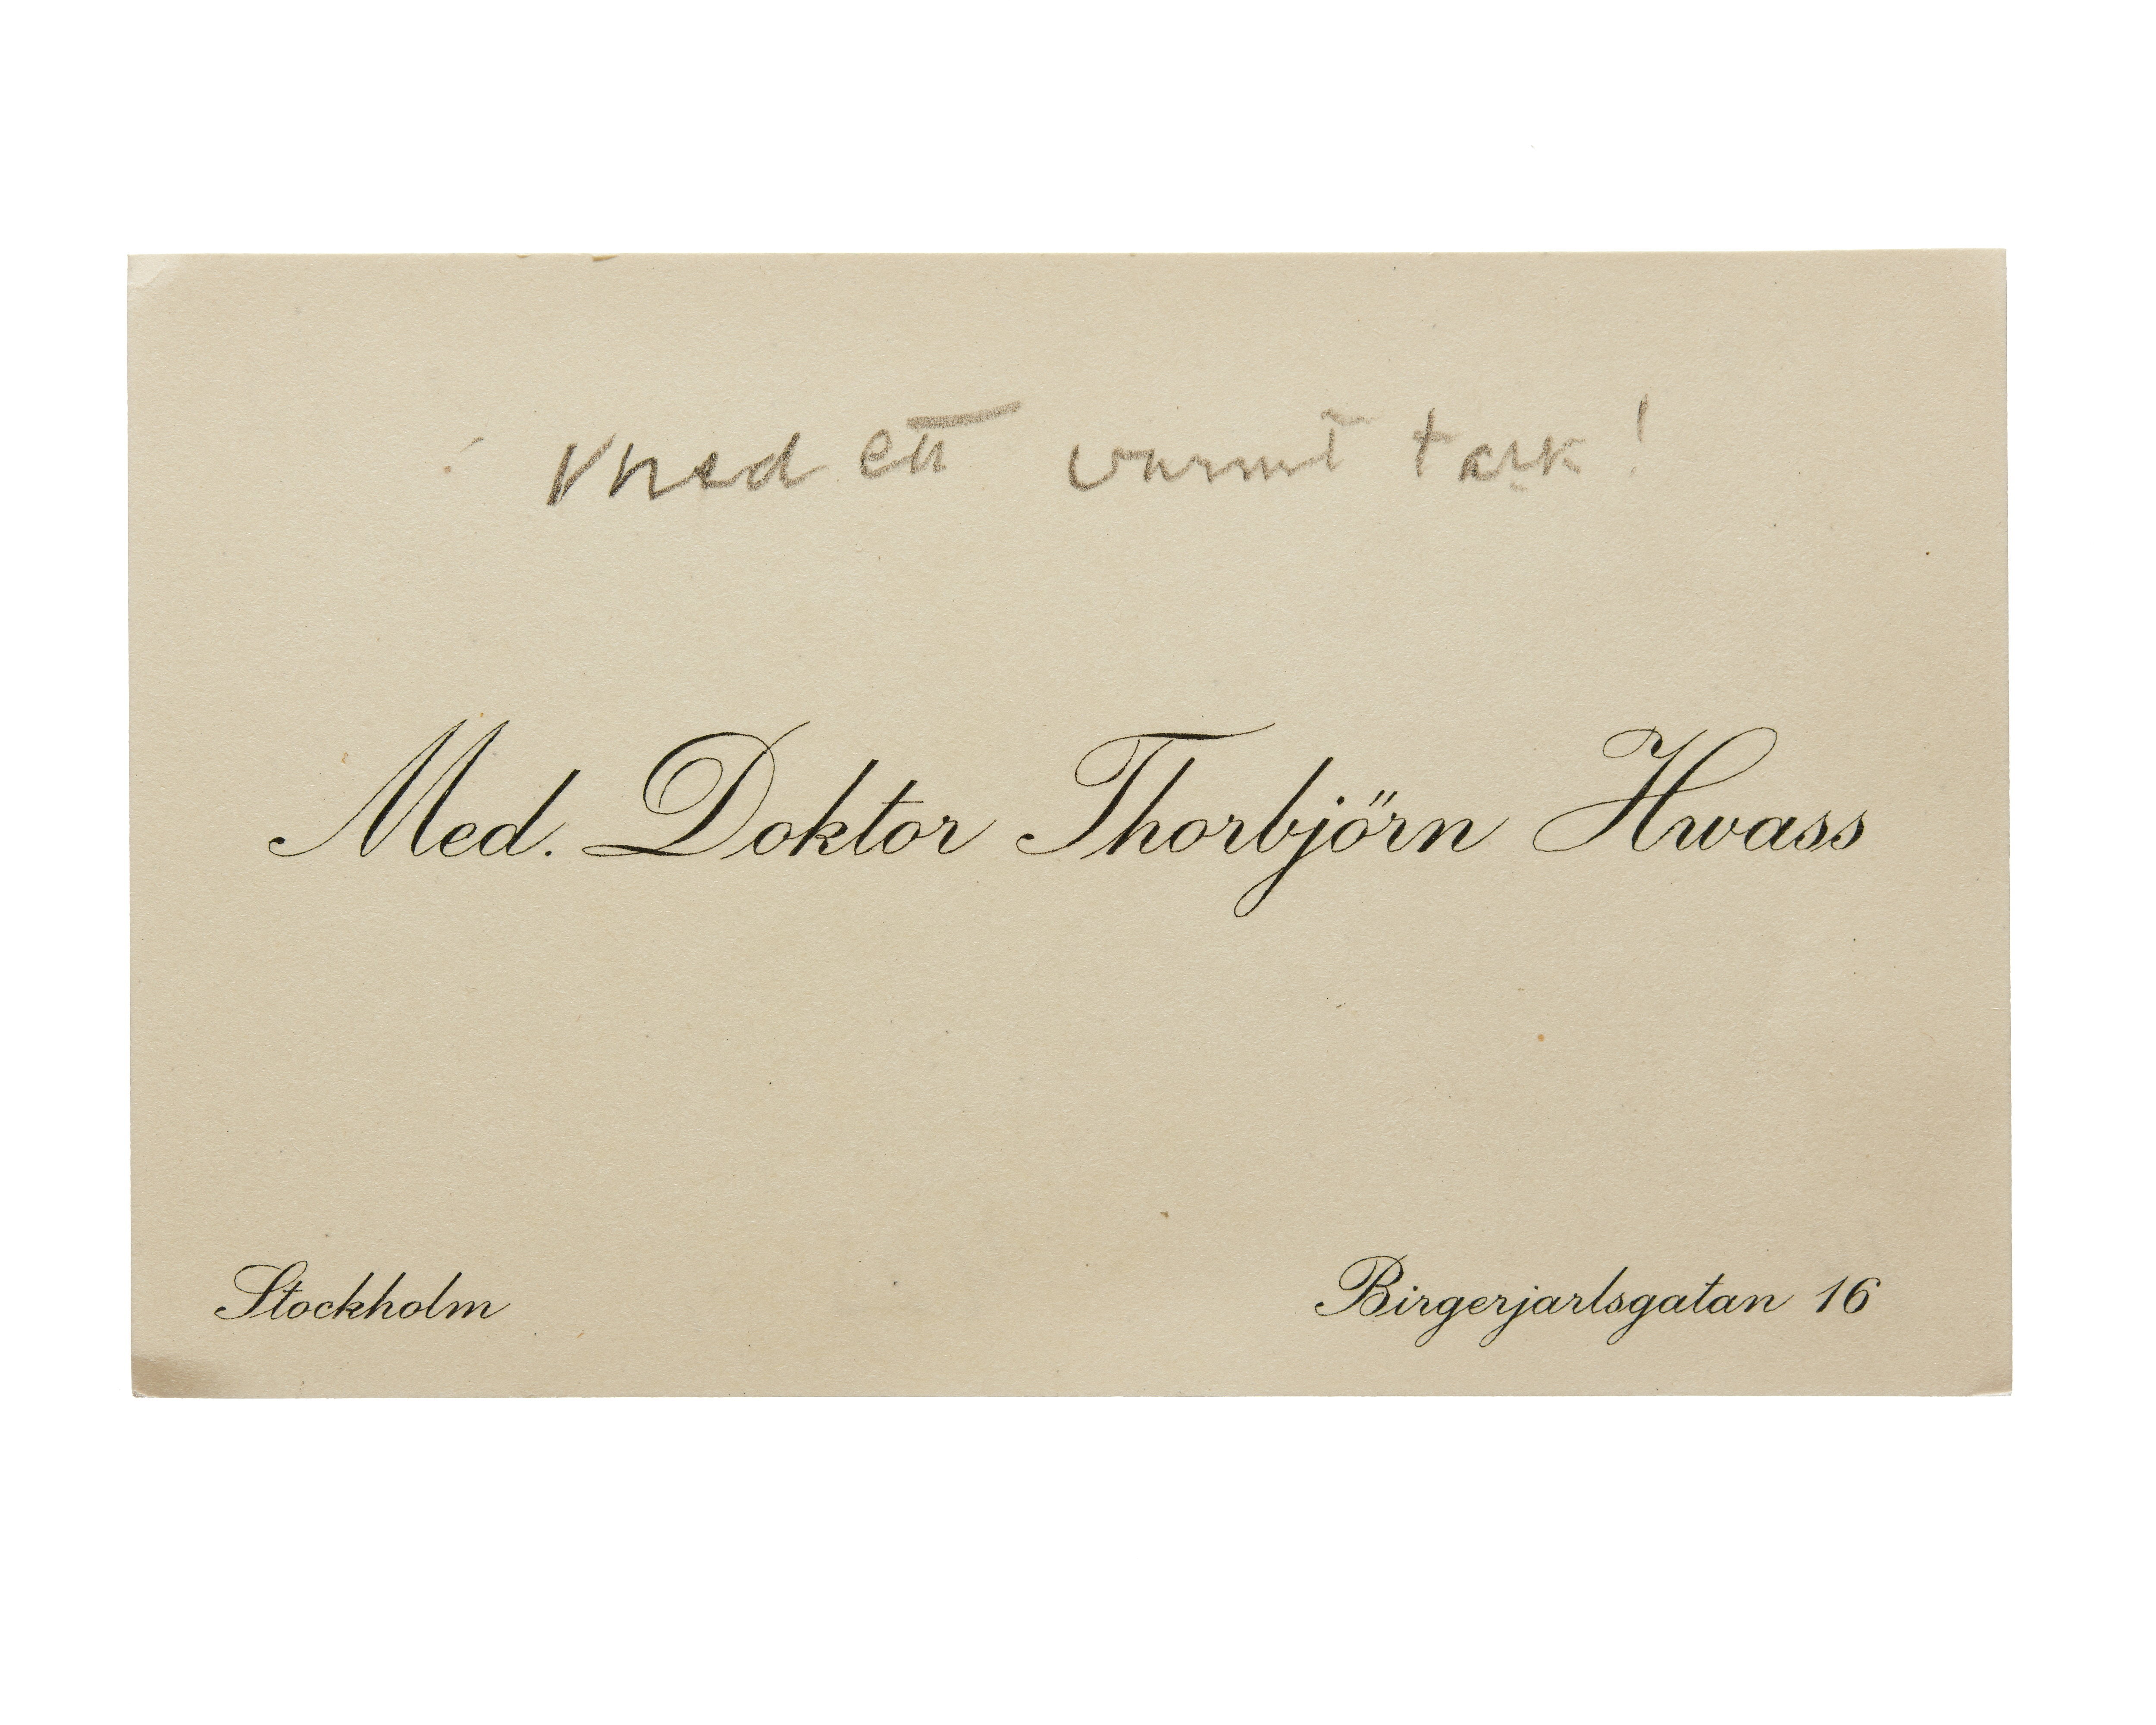 med ett varmt tack!
Med. Doktor Thorbjörn Hwass
Stockholm
Birgerjarlsgatan 16